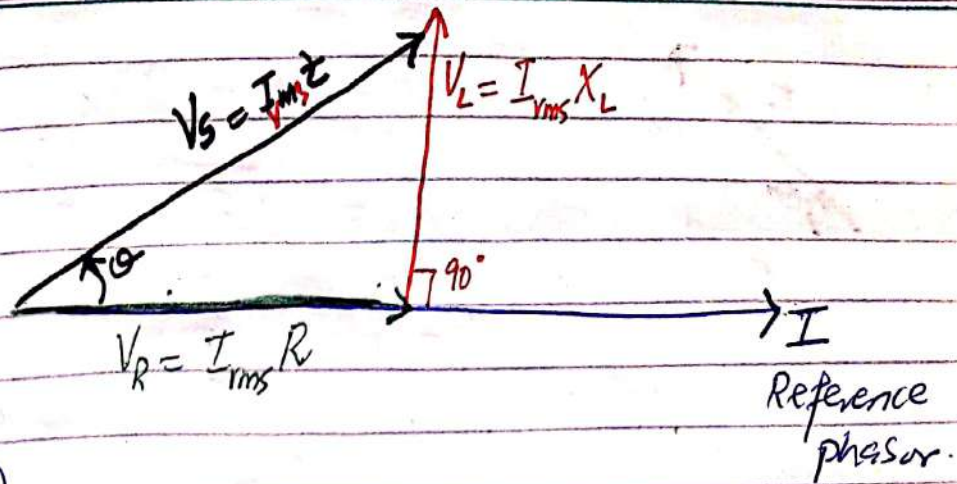 V_S = I_rms Z
V_L = I_rms X_L
θ
90°
V_R = I_rms R
I
Reference
phasor.